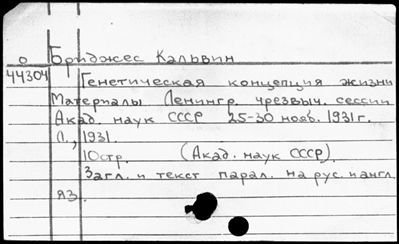 О Бриджес Кальвин
44304 Генетическая концепция жизни
Материалы Ленингр. чрезвыч. сессии
Акад. наук СССР 25-30 нояб. 1931 г.
Л., 1931.
10 стр. (Акад. наук СССР).
Загл. и текст парал. на рус. и англ
яз.